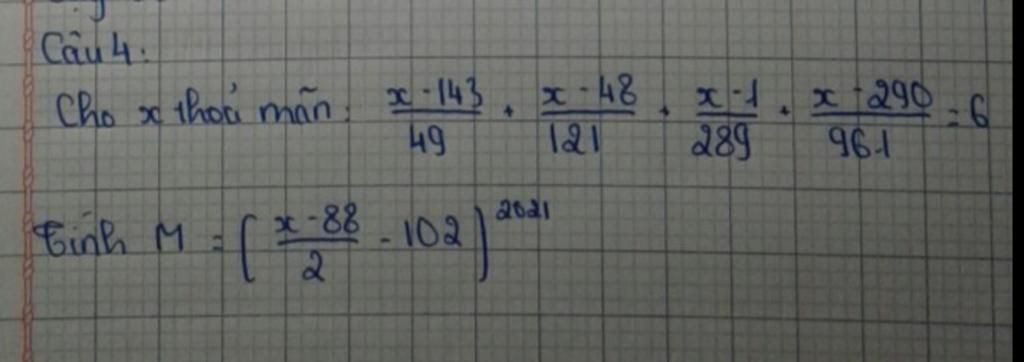 Câu 4:
Cho x thoả mãn: \frac{x-143}{49} + \frac{x-48}{121} + \frac{x-1}{289} + \frac{x-290}{961} = 6
Tính M = \left( \frac{x-88}{2} - 102 \right)^{2021}